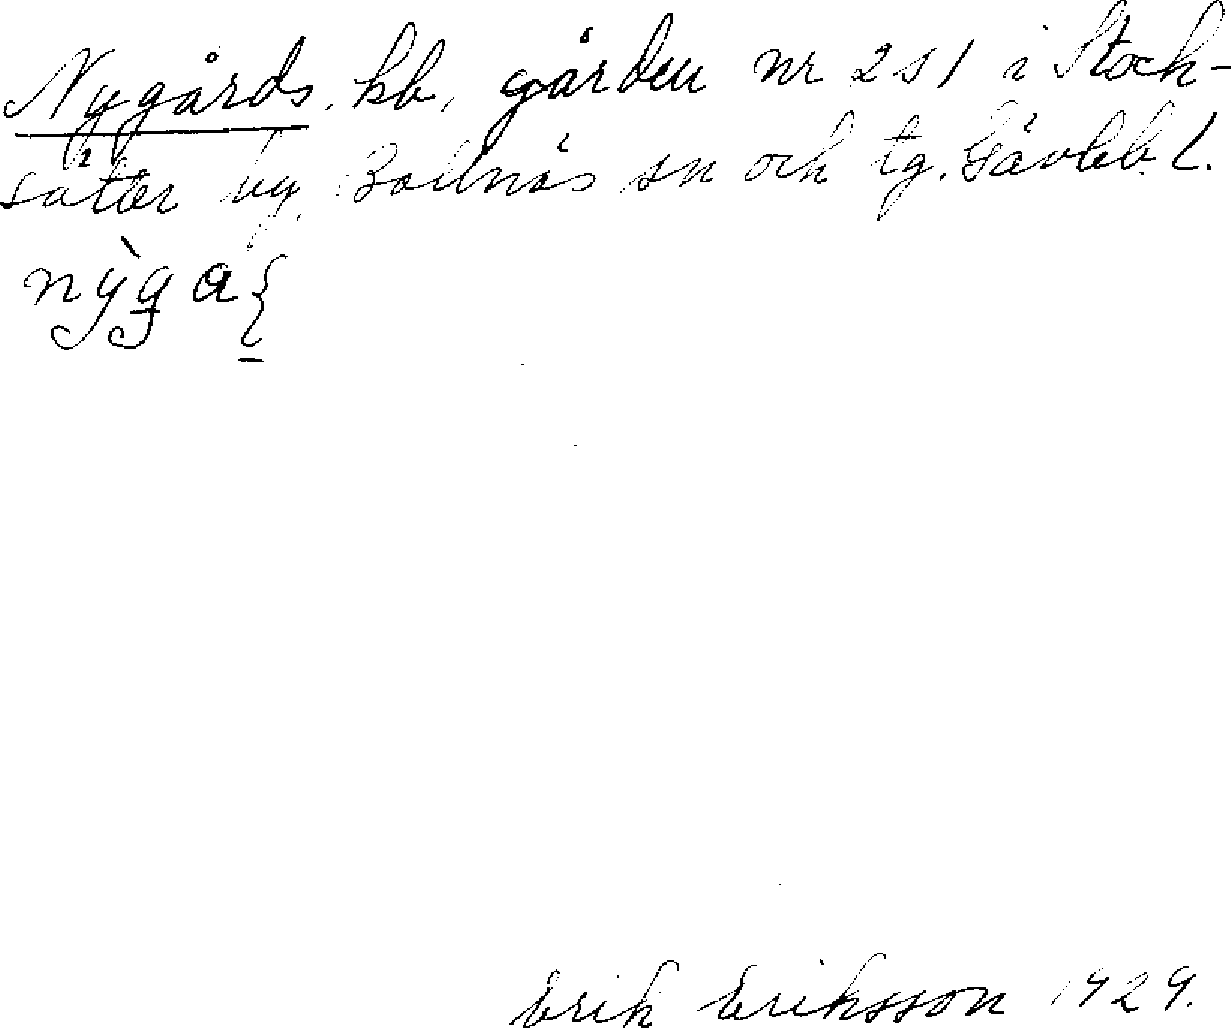 Nygårds, hb, gården nr 2 s 1 i Stock-
säter by, Bollnäs sn och tg. Gävleb. l.
nỳga
Erik Eriksson 1929.